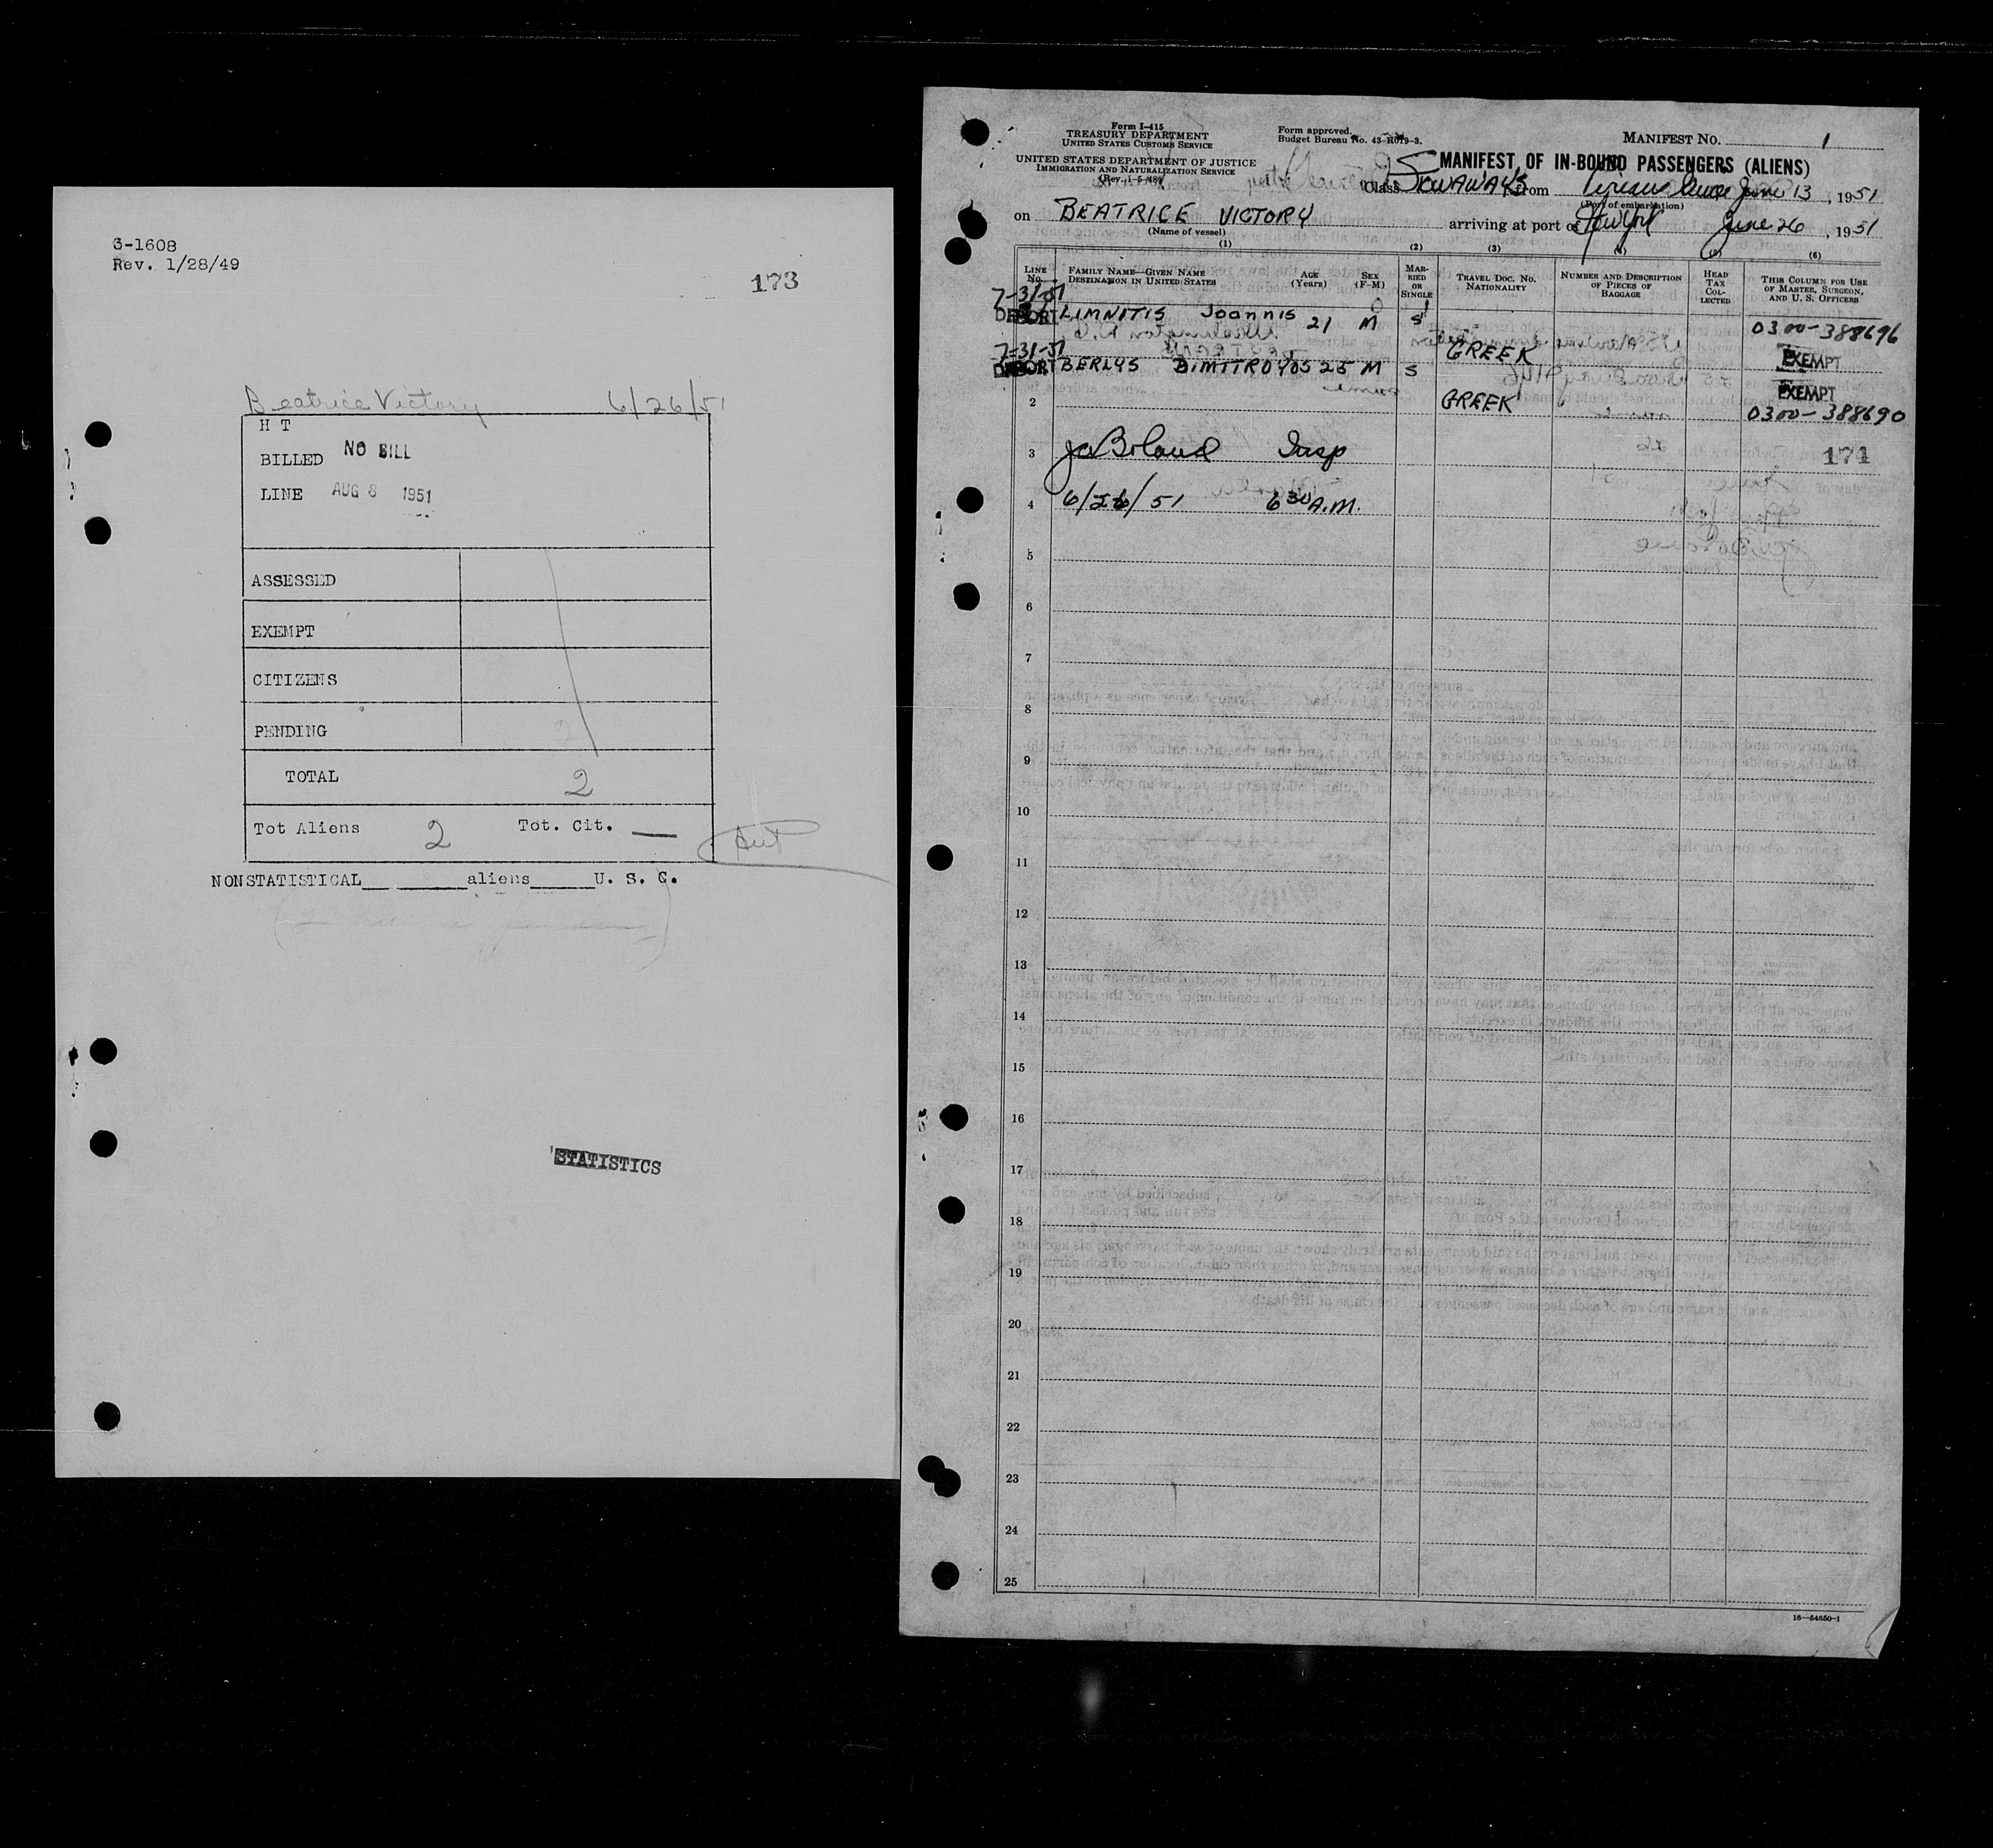 3-1608
Rev. 1/28/49
173
Beatrice Victory 6/26/51
H T
BILLED NO BILL
LINE AUG 8 1951
ASSESSED
EXEMPT
CITIZENS
PENDING
TOTAL 2
Tot Aliens 2 Tot. Cit. —
NONSTATISTICAL aliens U. S. C.
STATISTICS
Form I-415
TREASURY DEPARTMENT
UNITED STATES CUSTOMS SERVICE
UNITED STATES DEPARTMENT OF JUSTICE
IMMIGRATION AND NATURALIZATION SERVICE
(Rev. 1-5-48)
Form approved.
Budget Bureau No. 43-R019-3.
MANIFEST NO. 1
MANIFEST OF IN-BOUND PASSENGERS (ALIENS)
Class STOWAWAYS from Piraeus June 13, 1951
(Port of embarkation)
on BEATRICE VICTORY arriving at port of New York June 26, 1951
(Name of vessel)
(1) (2) (3) (4) (5) (6)
LINE NO. FAMILY NAME—GIVEN NAME DESTINATION IN UNITED STATES AGE (Years) SEX (F-M) MARRIED OR SINGLE TRAVEL DOC. NO. NATIONALITY NUMBER AND DESCRIPTION OF PIECES OF BAGGAGE HEAD TAX COLLECTED THIS COLUMN FOR USE OF MASTER, SURGEON, AND U. S. OFFICERS
7-31-51
DEPORT LIMNITIS Joannis 21 M S 0300-388696
7-31-51 GREEK EXEMPT
DEPORT BERLYS DIMITROYOS 25 M S EXEMPT
2 GREEK 0300-388690
3 Insp 174
4 6/26/51 6 30 A.M.
5
6
7
8
9
10
11
12
13
14
15
16
17
18
19
20
21
22
23
24
25
16-54650-1